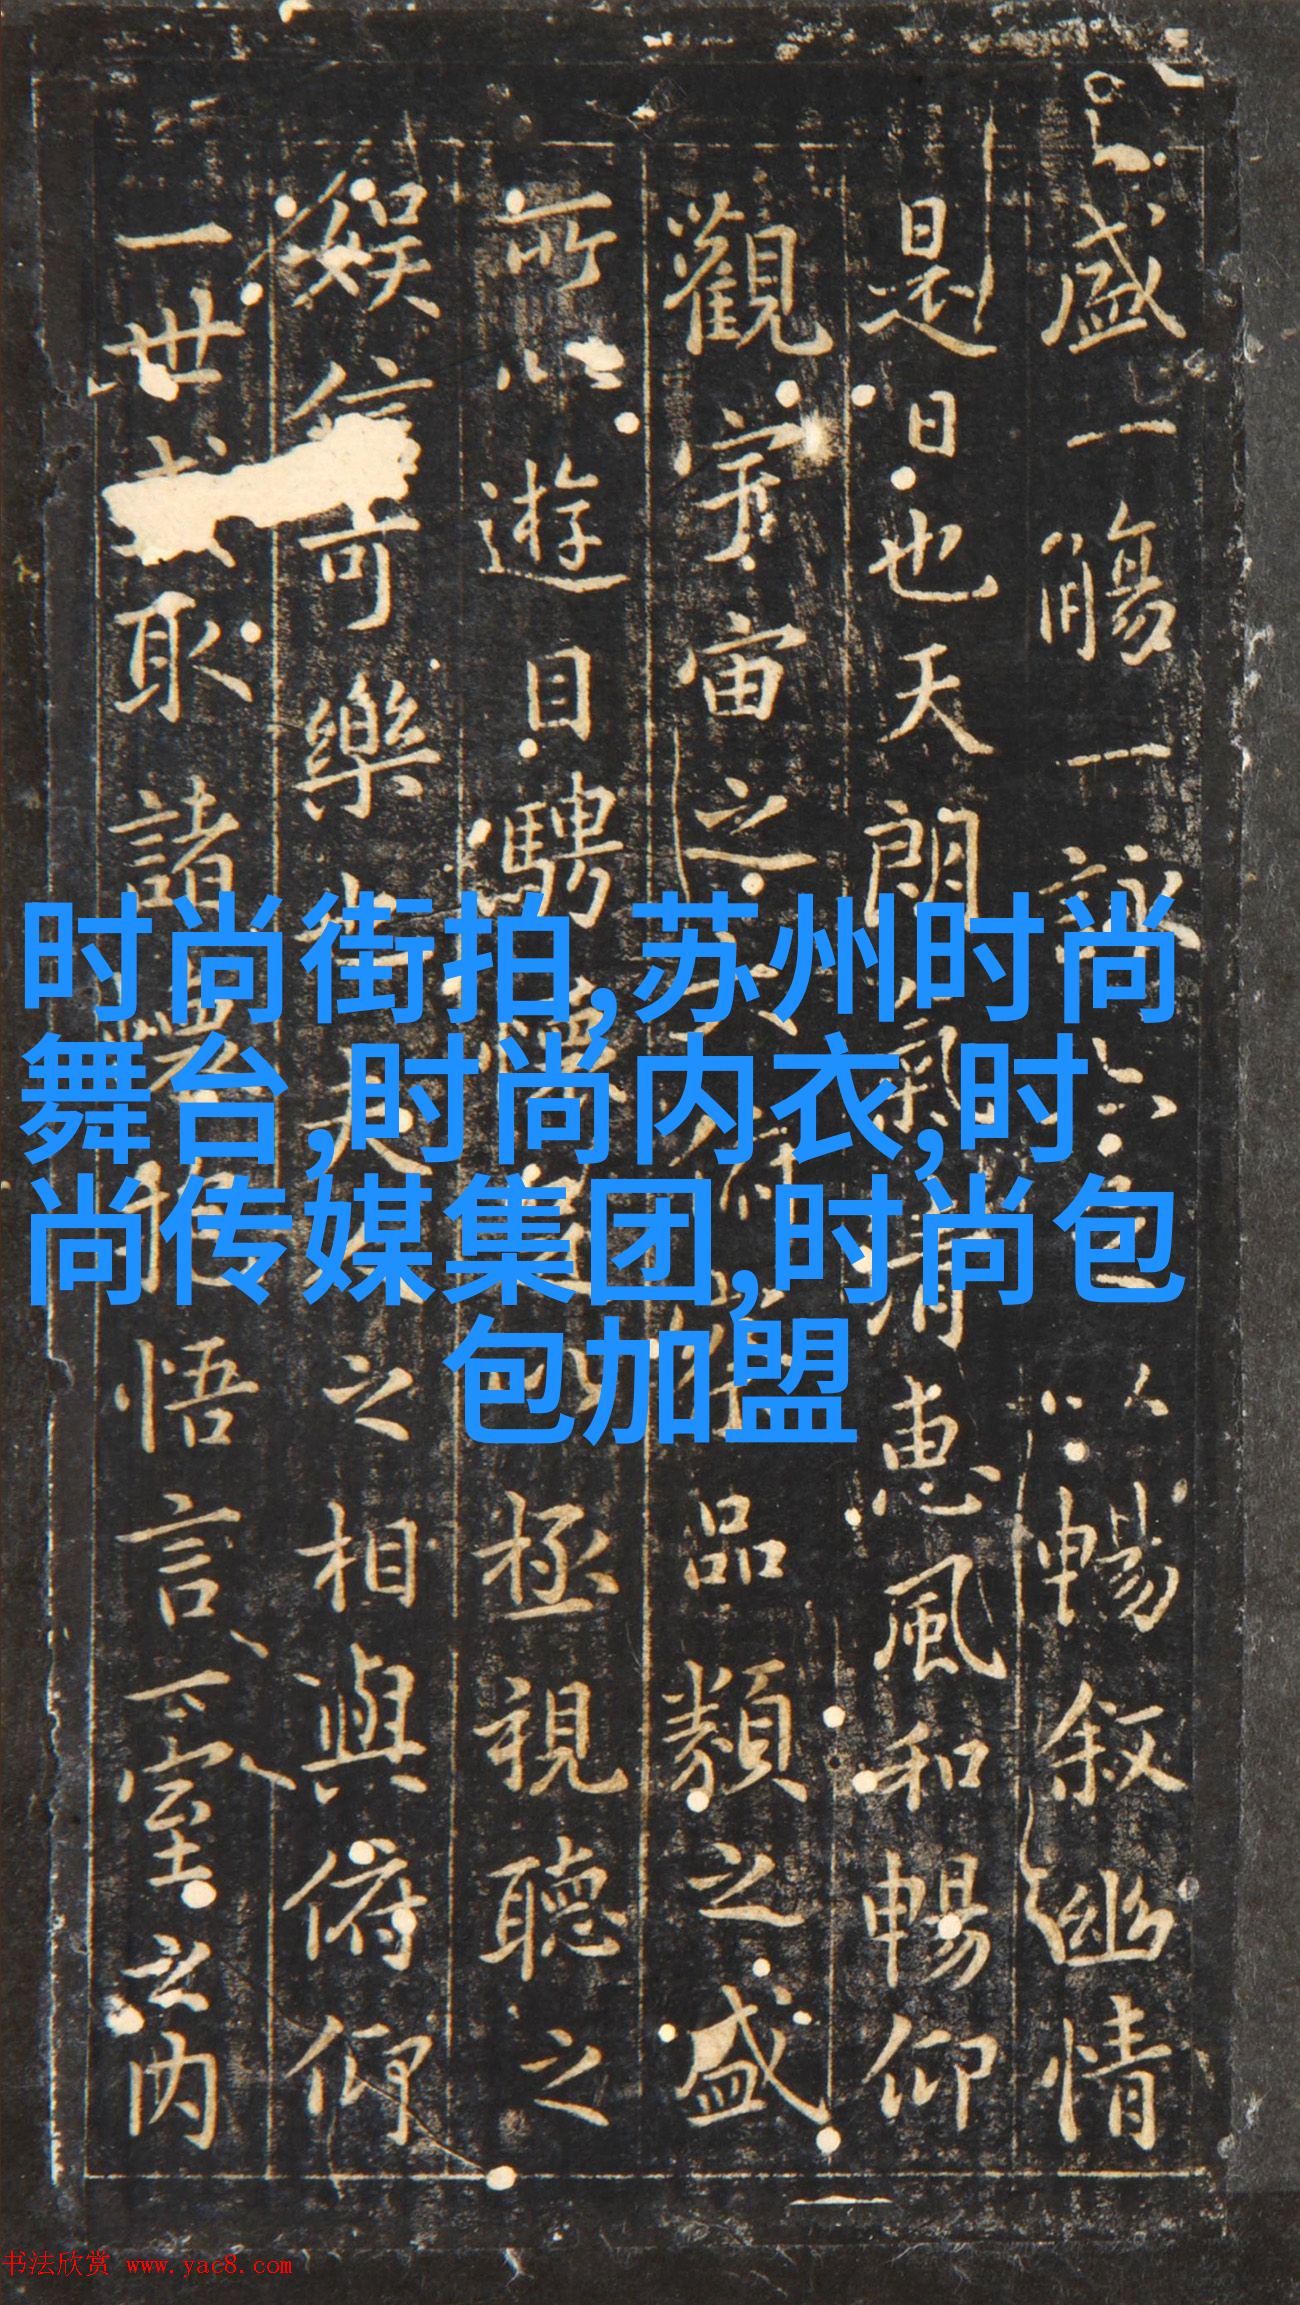 盛一觴一詠亦足以暢敘幽情
是日也天朗氣清惠風和暢仰
觀宇宙之大俯察品類之盛
所以遊目騁懷足以極視聽之
娛信可樂也夫人之相與俯仰
一世或取諸懷抱悟言一室之內
时尚街拍,苏州时尚
舞台,时尚内衣,时
尚传媒集团,时尚包
包加盟
书法欣赏 www.yac8.com